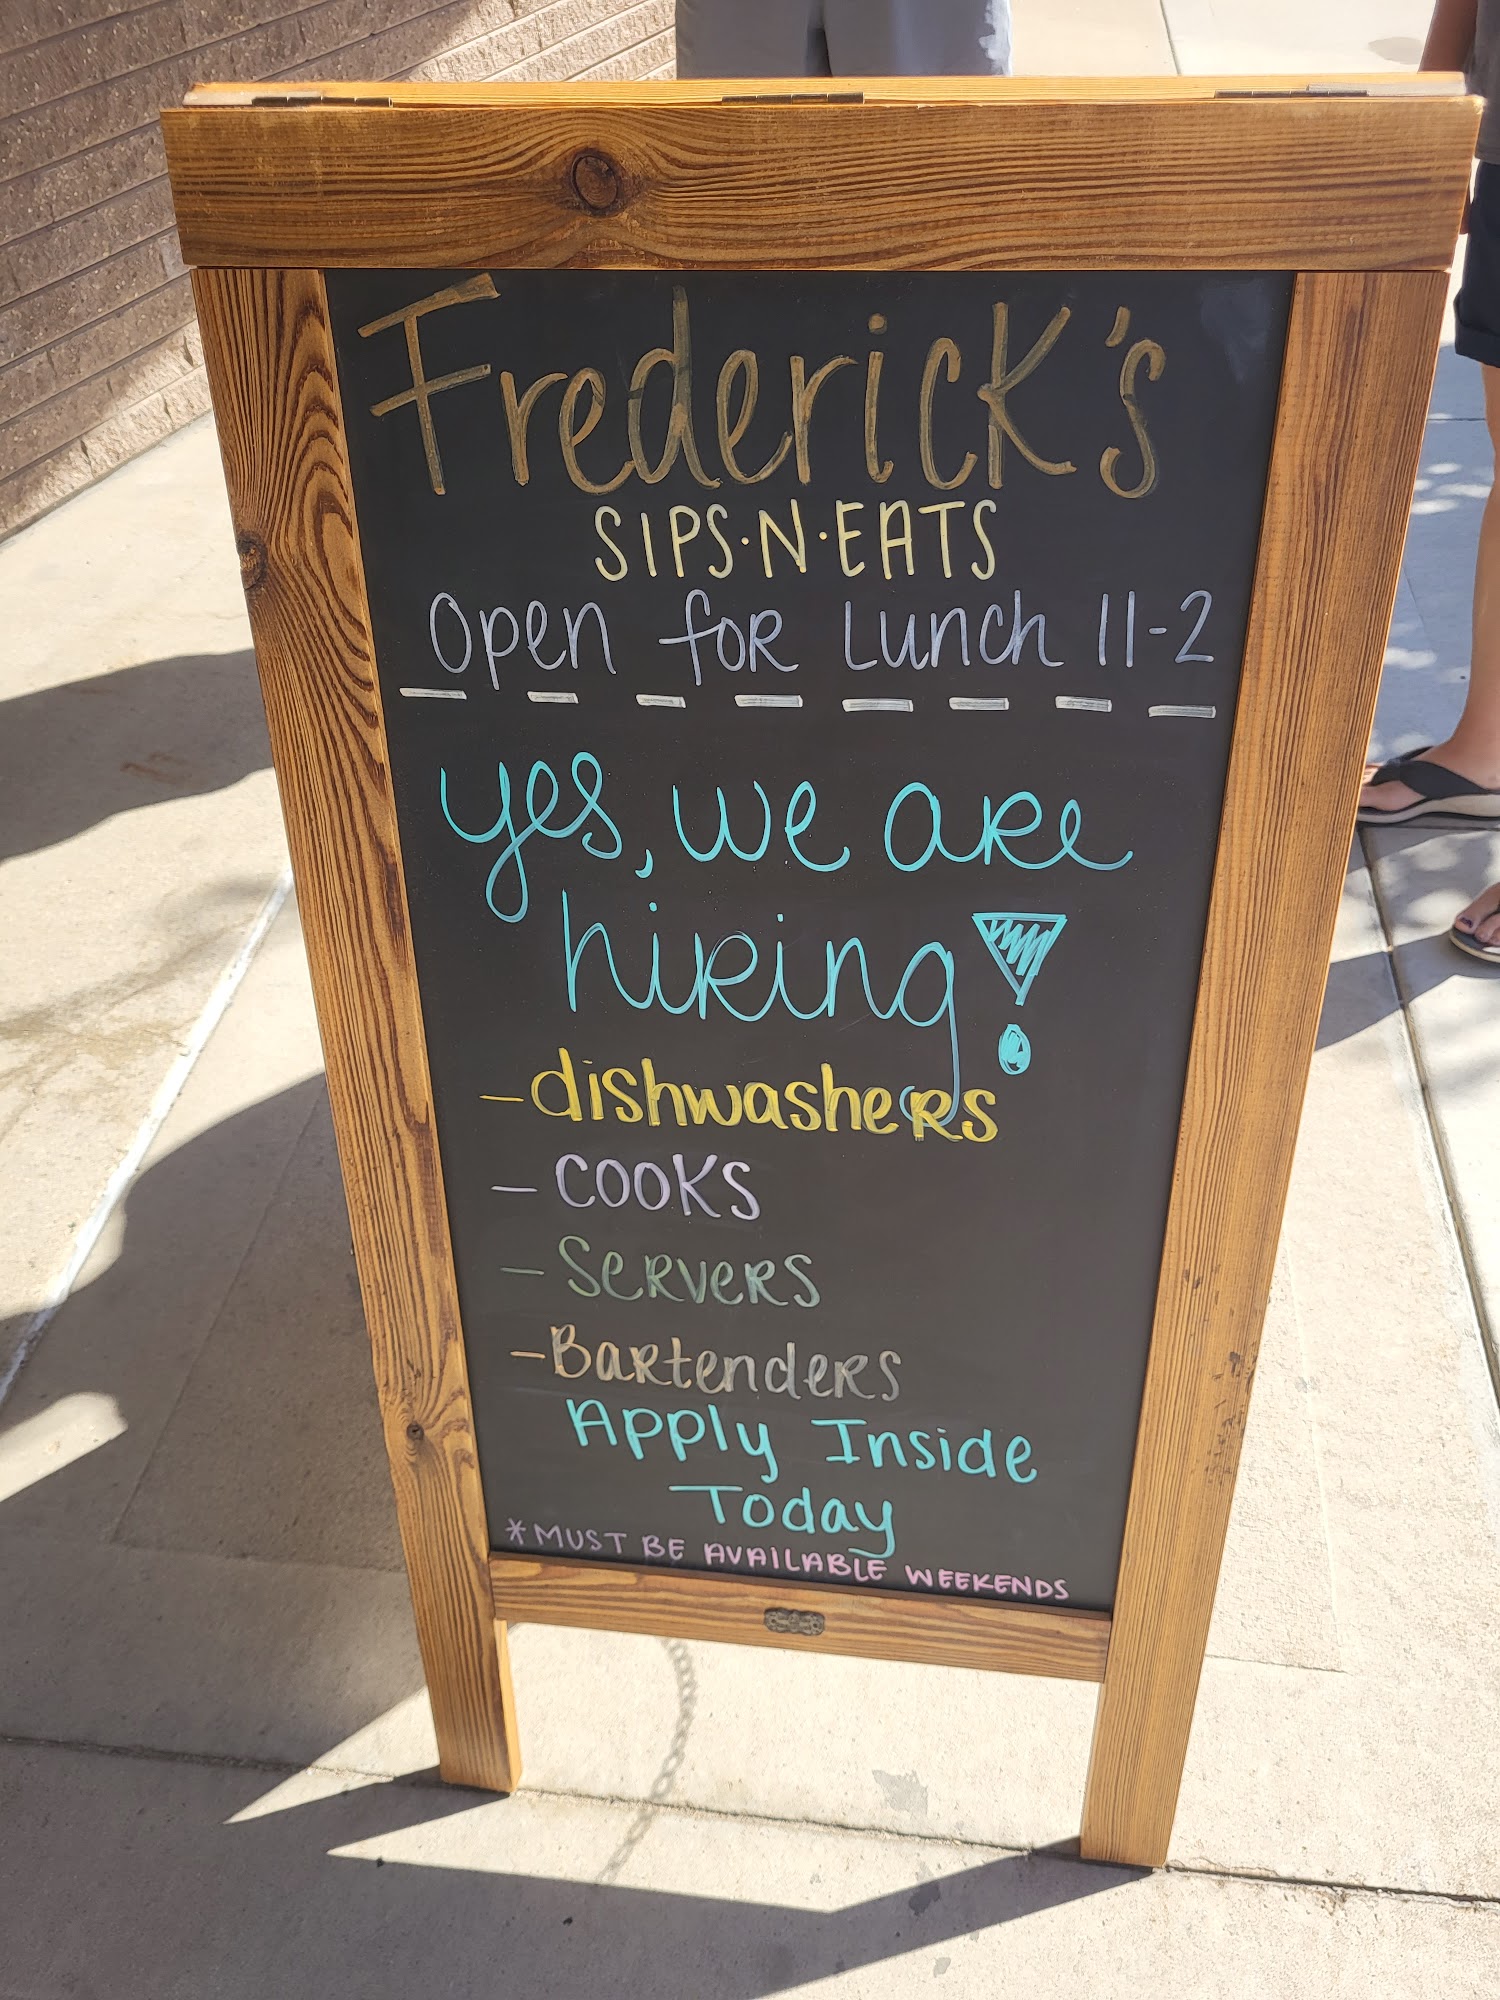 Frederick's
SIPS·N·EATS
Open for Lunch 11-2
yes, we are
hiring!
- dishwashers
- Cooks
- Servers
- Bartenders
Apply Inside
Today
*MUST BE AVAILABLE WEEKENDS